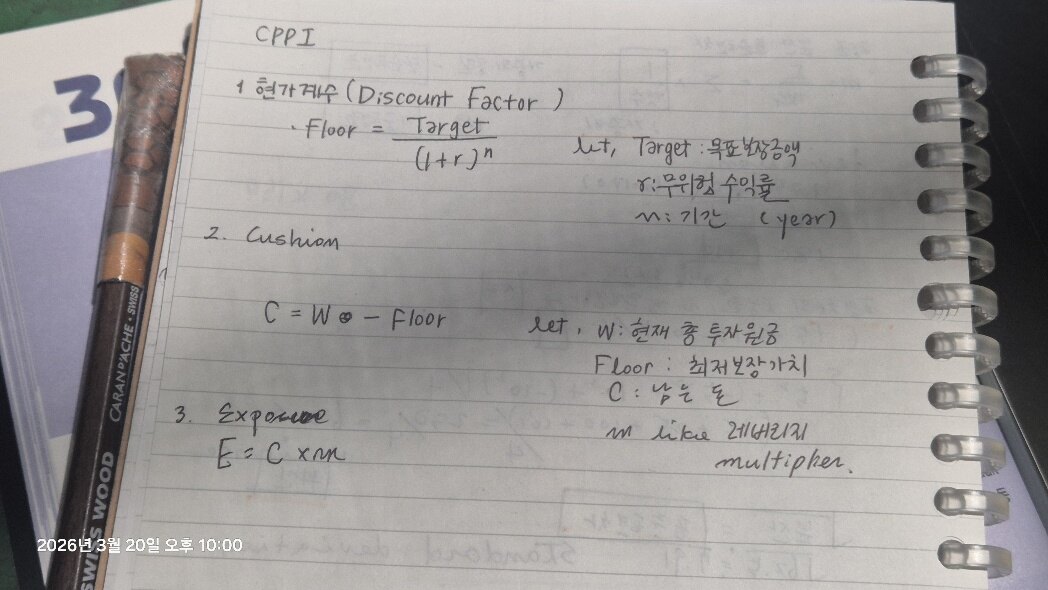 CPPI
1 현가계수 (Discount Factor )
· Floor = Target / (1+r)^n
let, Target : 목표보장금액
r : 무위험 수익률
n : 기간 (year)
2. Cushion
C = W - Floor
let, W : 현재 총 투자원금
Floor : 최저보장가치
C : 남는 돈
3. Exposure
E = C × m
m like 레버리지
multiplier.
CARAN D'ACHE · SWISS
SWISS WOOD
2026년 3월 20일 오후 10:00